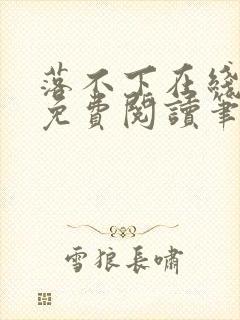 落不下在綫
免費閱讀筆
雪狼長嘯